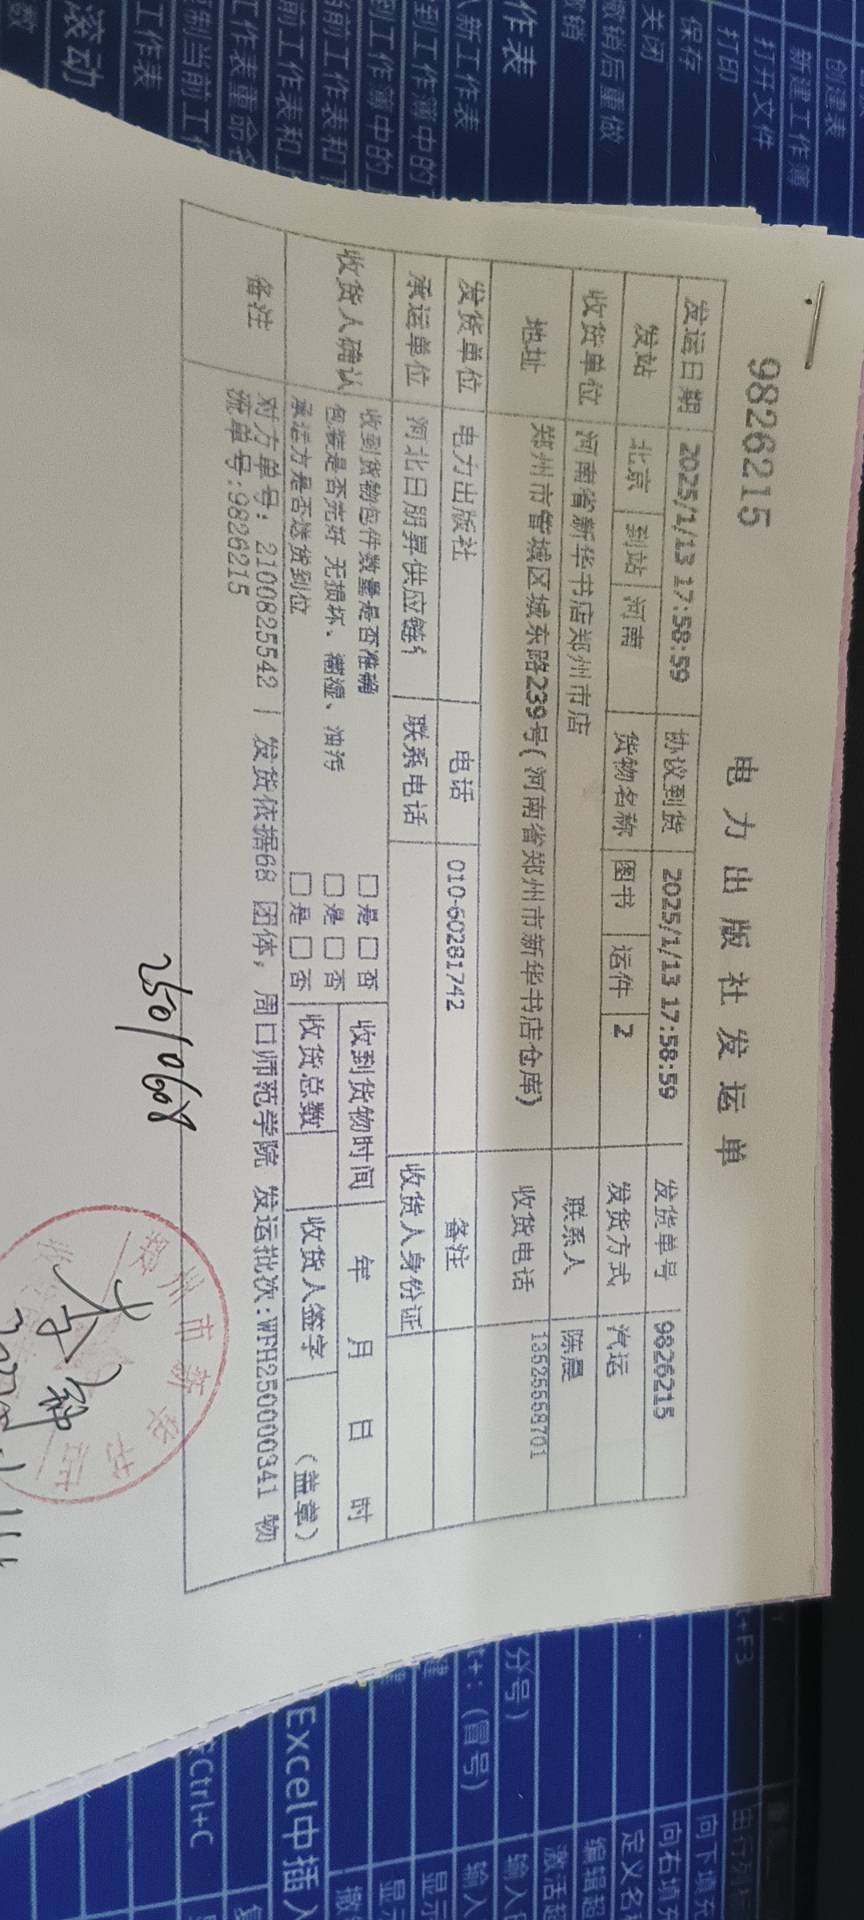 9826215
电力出版社发运单
发运日期 2025/1/13 17:58:59 协议到货 2025/1/13 17:58:59 发货单号 9826215
发站 北京 到站 河南 货物名称 图书 运件 2 发货方式 汽运
收货单位 河南省新华书店郑州市店 联系人 陈晨
地址 郑州市管城区城东路239号(河南省郑州市新华书店仓库) 收货电话 13525558701
发货单位 电力出版社 电话 010-60281742 备注
承运单位 河北日朋昇供应链 联系电话 收货人身份证
收货人确认 收到货物包件数量是否准确 □是□否 收到货物时间 年 月 日 时
包装是否完好 无损坏、潮湿、油污 □是□否
承运方是否送货到位 □是□否 收货总数 收货人签字 (盖章)
备注 对方单号：2100825542 | 发货依据68 团体，周口师范学院 发运批次:WFH250000341 物
流单号:9826215
25010608
郑州市新华书店
创建表
新建工作簿
打开文件
打印
保存
关闭
撤销后重做
撤销
作表
入新工作表
到工作簿中的
到工作簿中的上
当前工作表和
前工作表和上
工作表重命名
复制当前工作
工作表
滚动
数
t+F3
分号)
t+:(冒号)
Excel中插入
Ctrl+C
向下填充
向右填充
编辑超
激活超
输入
显示